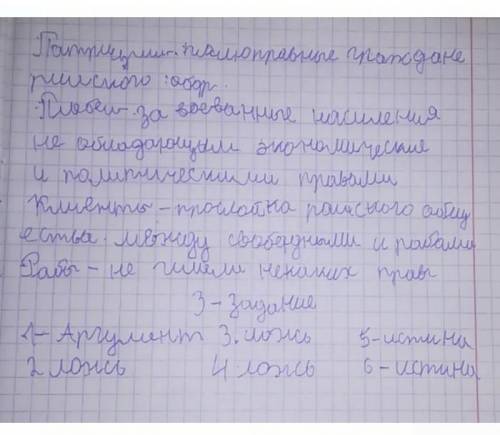 Патриции - полноправные граждане
римского общ.
Плебеи - за воеванные насиления
не обладающим экономические
и политическими правами
Клиенты - прослойка римского общ
ества между свободными и рабами
Рабы - не имели неначих прав
3 - задание
1 - Аргумент 3. ложь 5 - истина
2 ложь 4 ложь 6 - истина